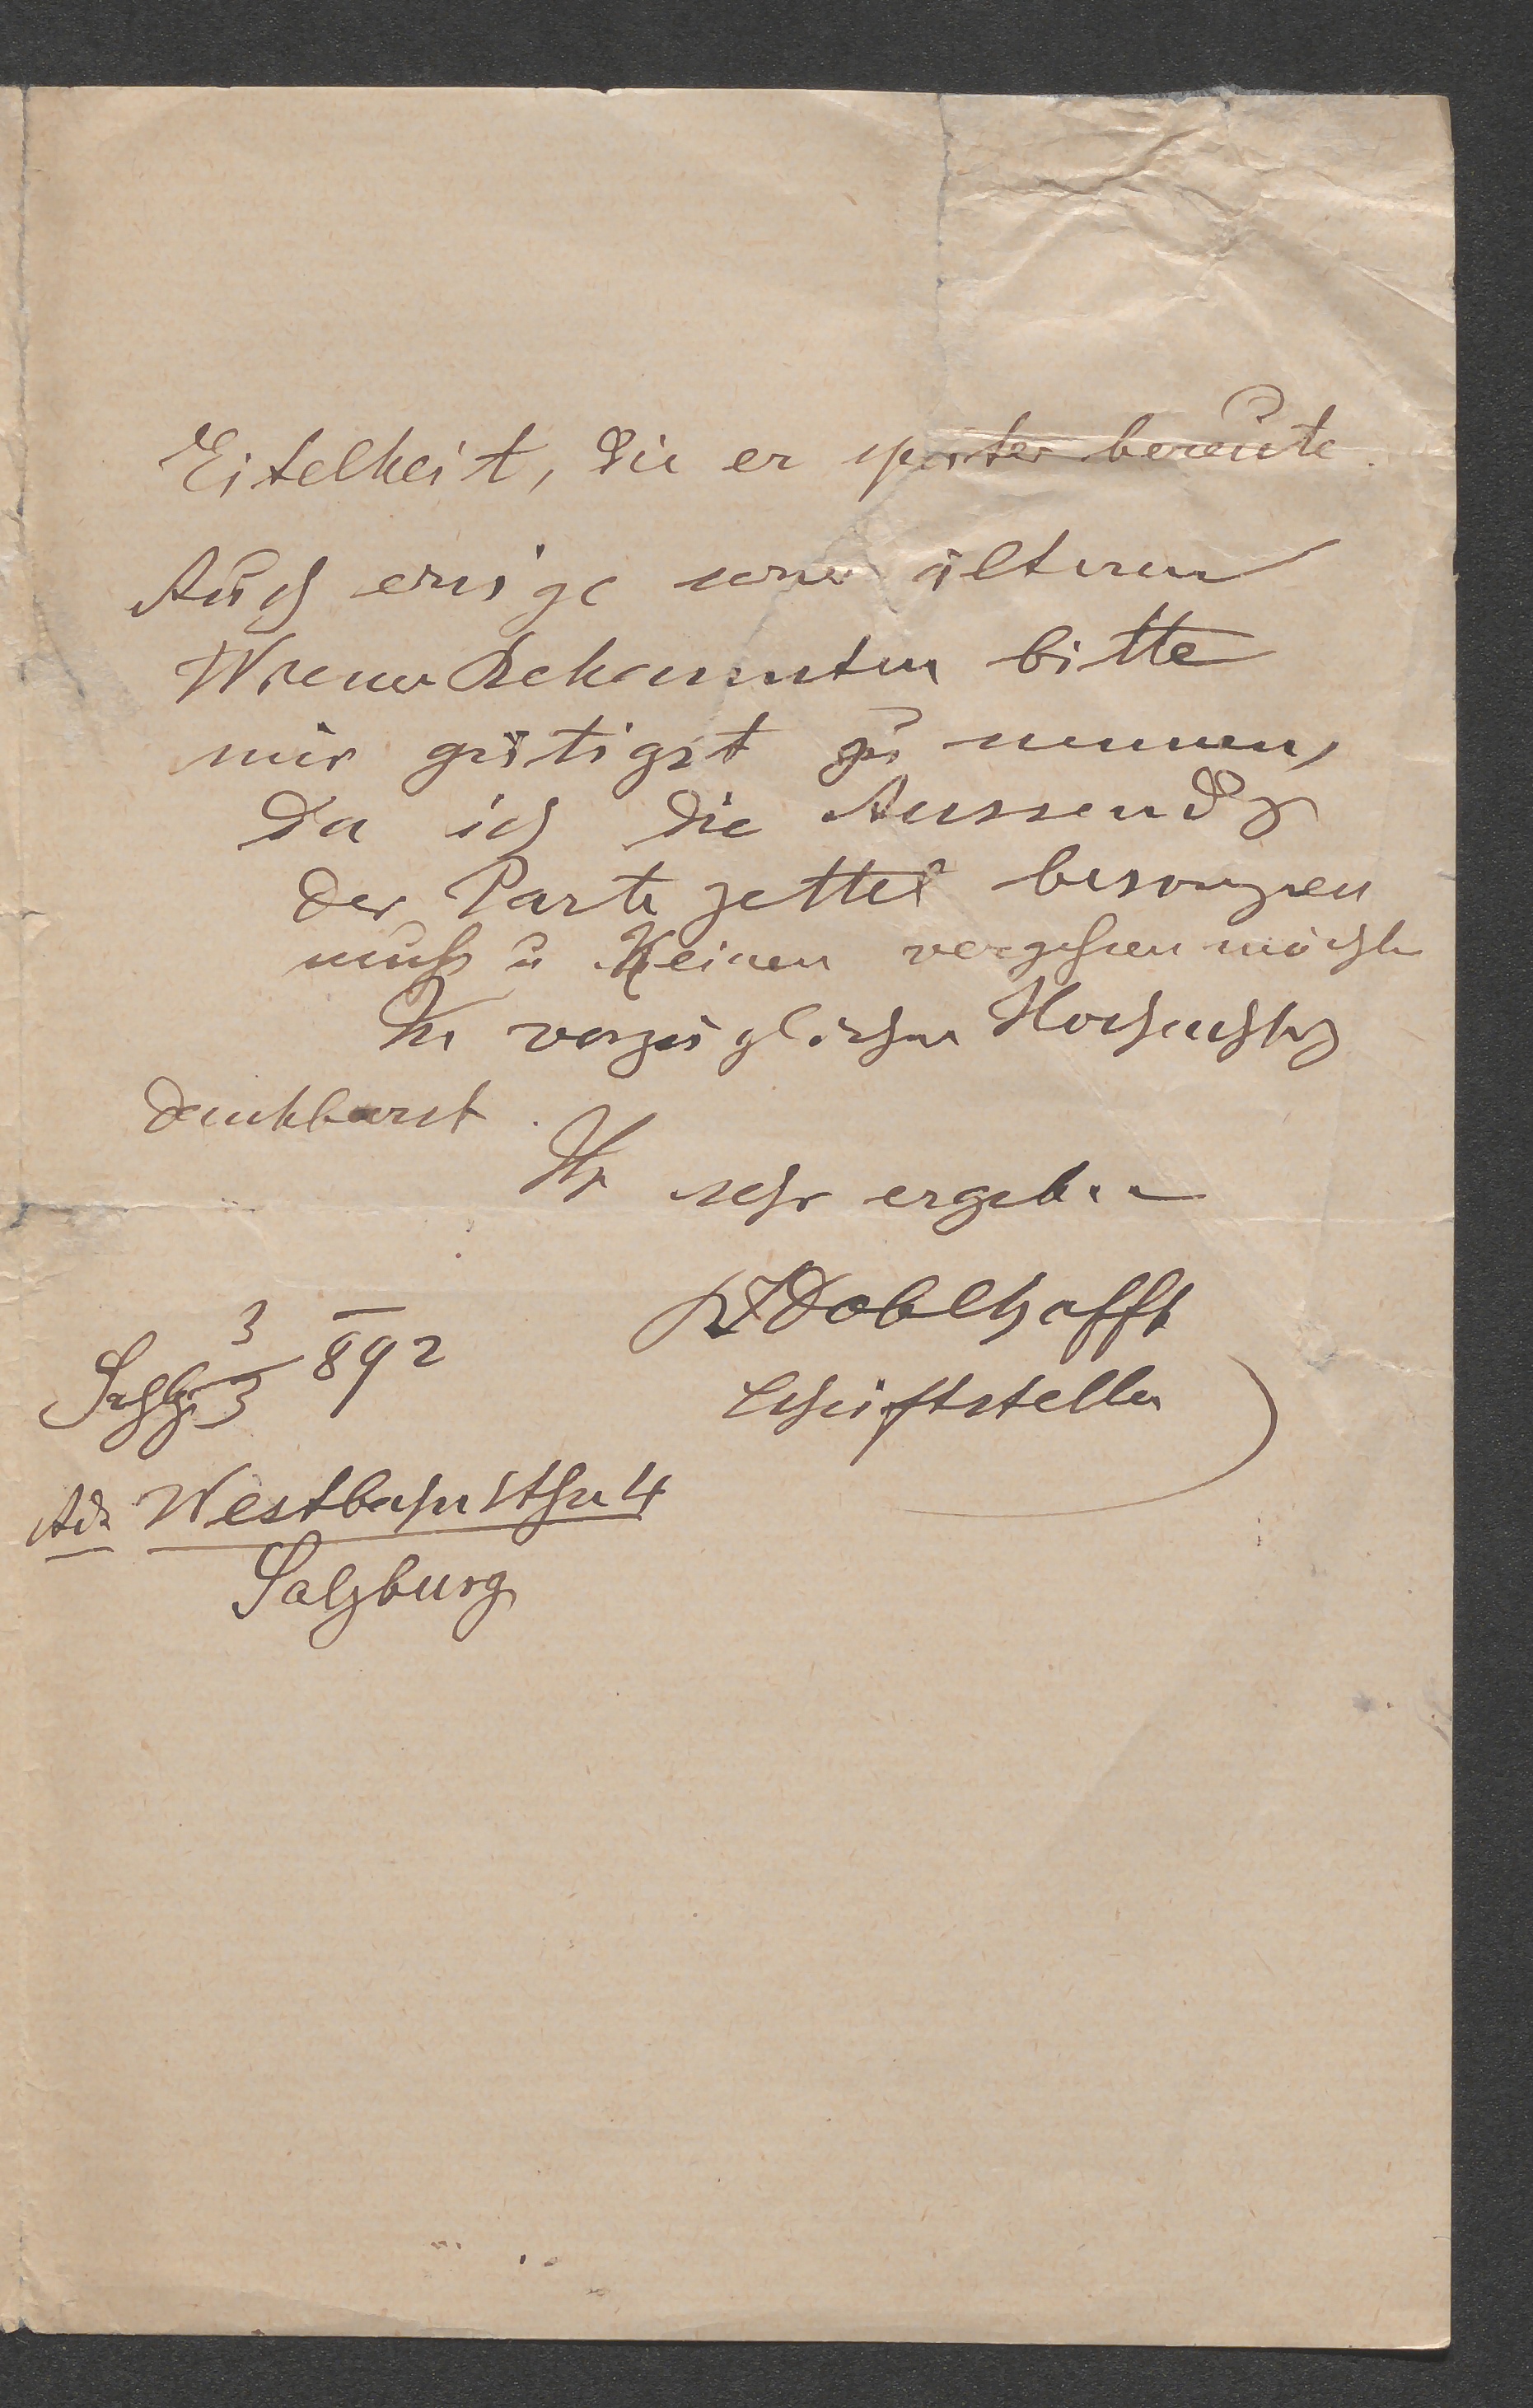 Eitelkeit, die er später bereute.
Auch einige seiner älteren
Wiener Bekannten bitte
mir gütigst zu nennen,
da ich die Aussendg
der Parte zettel besorgen
muß u. Keinen vergessen möchte
In vorzüglicher Hochachtg
dankbarst.
Ihr sehr ergeben
Doblhofft
Schriftsteller
Szbg 3/3 892
Adr. Westbahnstße 4
Salzburg